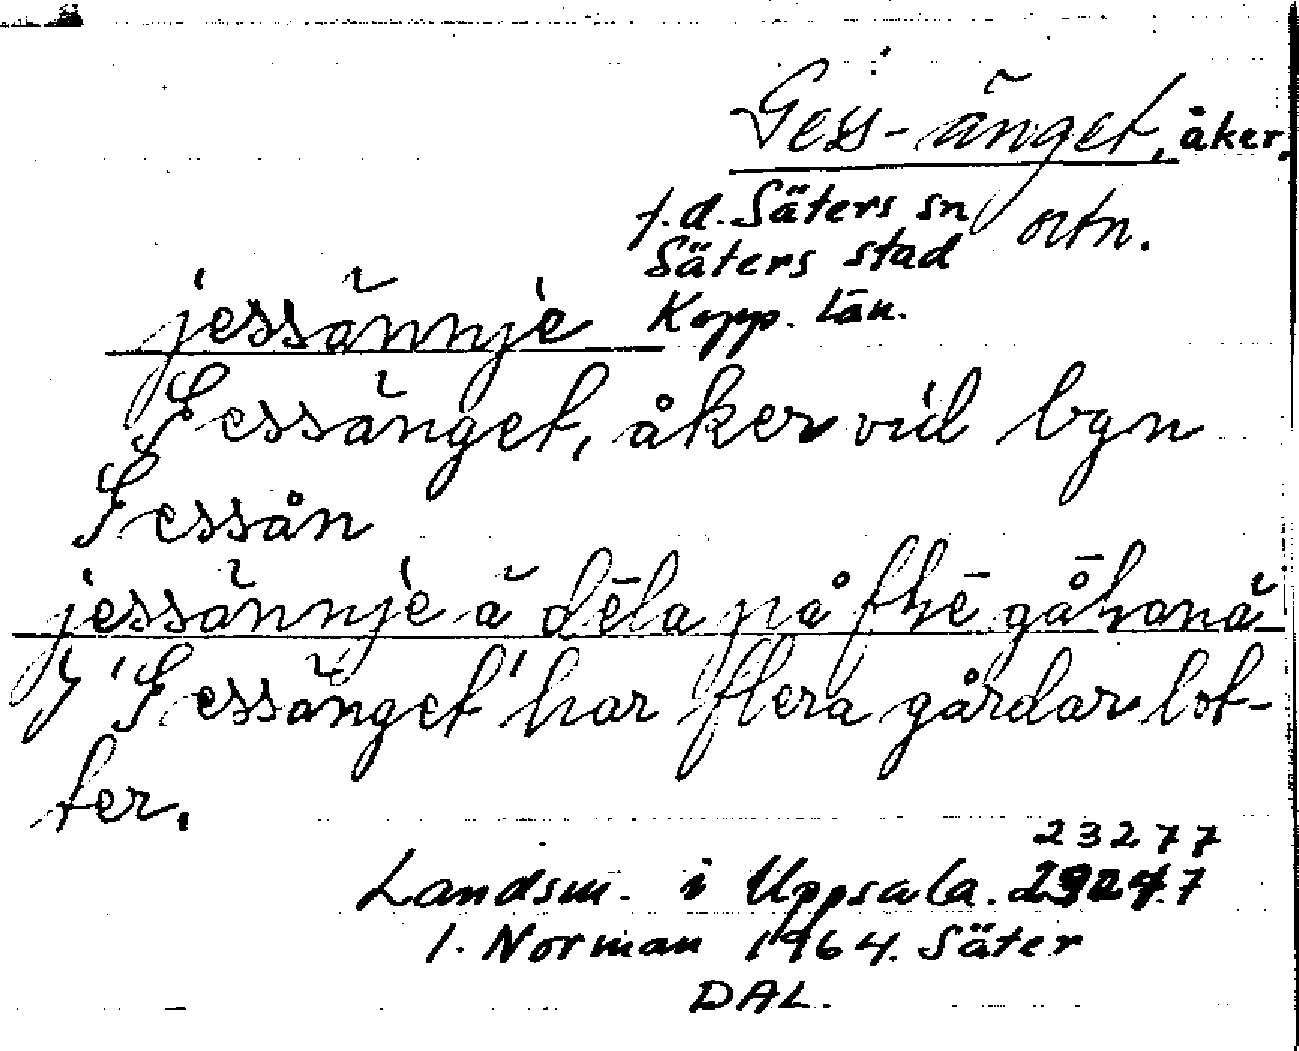 Ges-änget, åker,
f.d. Säters sn ortn.
Säters stad
Kopp. län.
jessännje
Jessänget, åker vid byn
Jessån
jessännje ä dēla på flē gåhanä
I 'Jessänget' har flera gårdar lot-
ter.
23277
Landsm. i Uppsala.
I. Norman 1964. Säter
DAL.